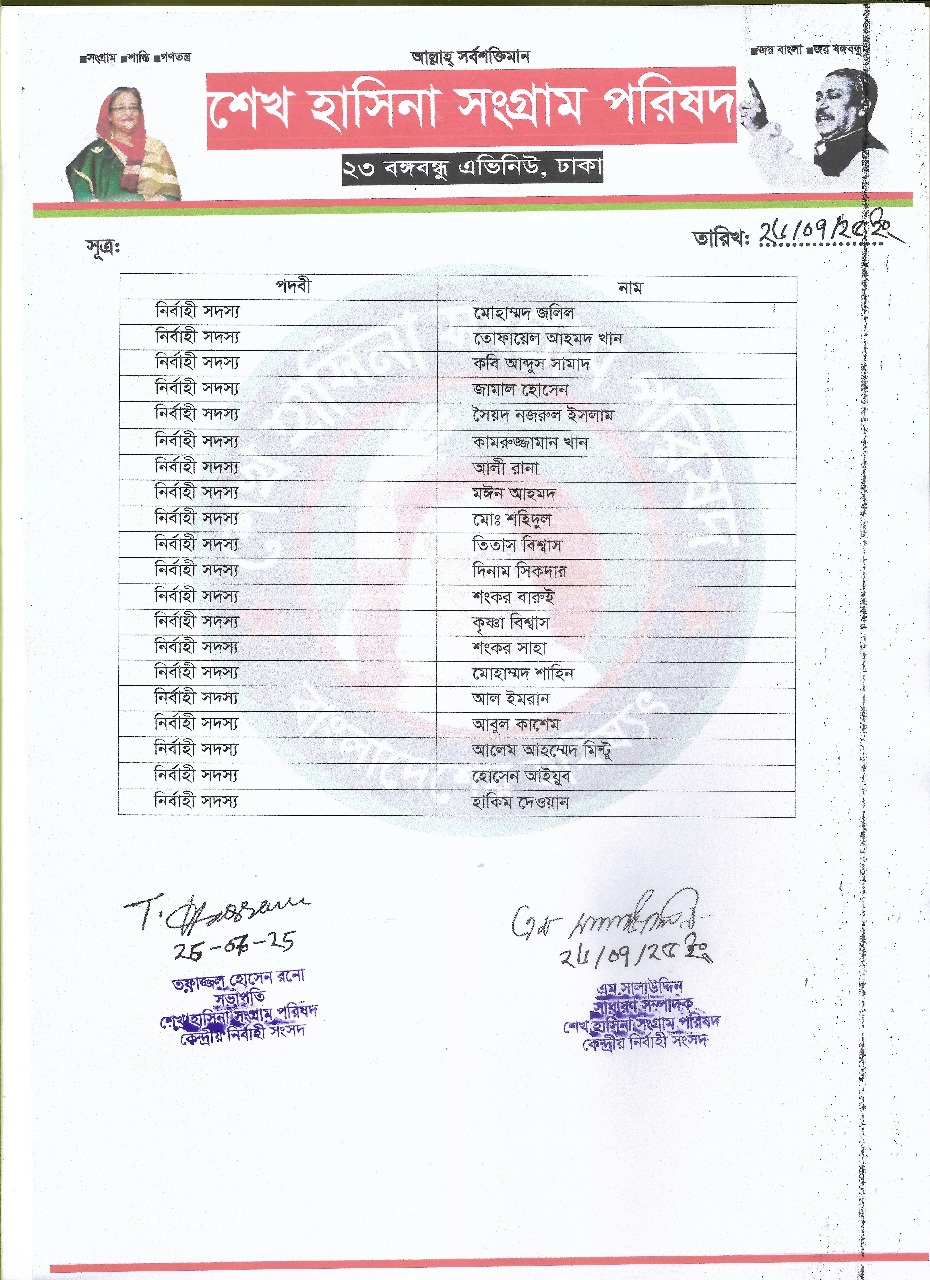 ■সংগ্রাম ■শান্তি ■গণতন্ত্র
আল্লাহ্ সর্বশক্তিমান
■জয় বাংলা ■জয় বঙ্গবন্ধু
শেখ হাসিনা সংগ্রাম পরিষদ
২৩ বঙ্গবন্ধু এভিনিউ, ঢাকা
সূত্র:
তারিখ: ২৬/০৭/২৫ ইং
পদবী নাম
নির্বাহী সদস্য মোহাম্মদ জলিল
নির্বাহী সদস্য তোফায়েল আহমদ খান
নির্বাহী সদস্য কবি আব্দুস সামাদ
নির্বাহী সদস্য জামাল হোসেন
নির্বাহী সদস্য সৈয়দ নজরুল ইসলাম
নির্বাহী সদস্য কামরুজ্জামান খান
নির্বাহী সদস্য আলী রানা
নির্বাহী সদস্য মঈন আহমদ
নির্বাহী সদস্য মোঃ শহিদুল
নির্বাহী সদস্য তিতাস বিশ্বাস
নির্বাহী সদস্য দিনাম সিকদার
নির্বাহী সদস্য শংকর বারুই
নির্বাহী সদস্য কৃষ্ণা বিশ্বাস
নির্বাহী সদস্য শংকর সাহা
নির্বাহী সদস্য মোহাম্মদ শাহিন
নির্বাহী সদস্য আল ইমরান
নির্বাহী সদস্য আবুল কাশেম
নির্বাহী সদস্য আলেম আহম্মেদ মিন্টু
নির্বাহী সদস্য হোসেন আইয়ুব
নির্বাহী সদস্য হাকিম দেওয়ান
T. Hassan
এম
২৬/০৭/২৫ ইং
তফাজ্জল হোসেন রনো
সভাপতি
শেখ হাসিনা সংগ্রাম পরিষদ
কেন্দ্রীয় নির্বাহী সংসদ
এম সালাউদ্দিন
সাধারণ সম্পাদক
শেখ হাসিনা সংগ্রাম পরিষদ
কেন্দ্রীয় নির্বাহী সংসদ